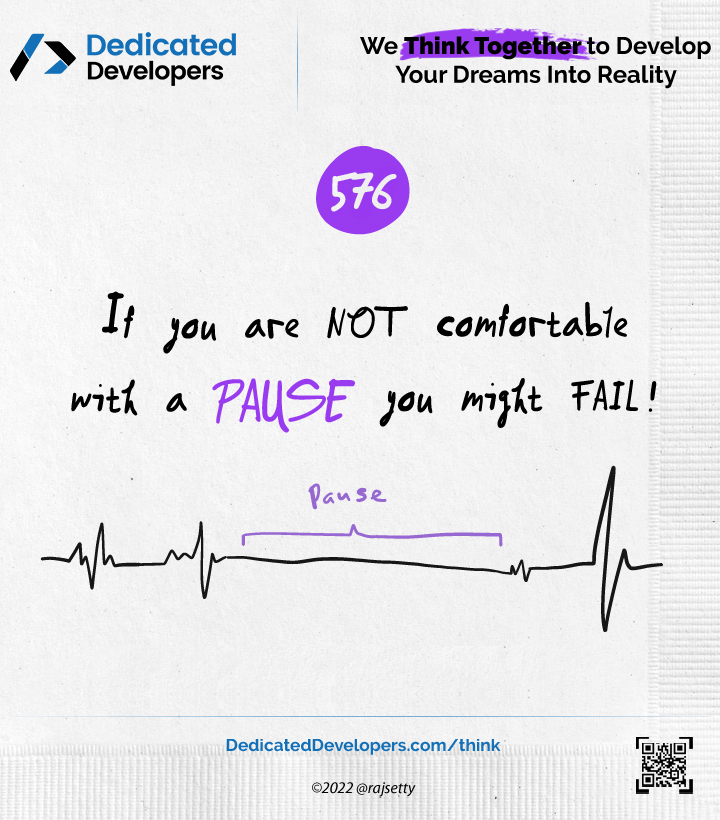 Dedicated
Developers
We Think Together to Develop
Your Dreams Into Reality
576
If you are NOT comfortable
with a PAUSE you might FAIL!
Pause
DedicatedDevelopers.com/think
©2022 @rajsetty